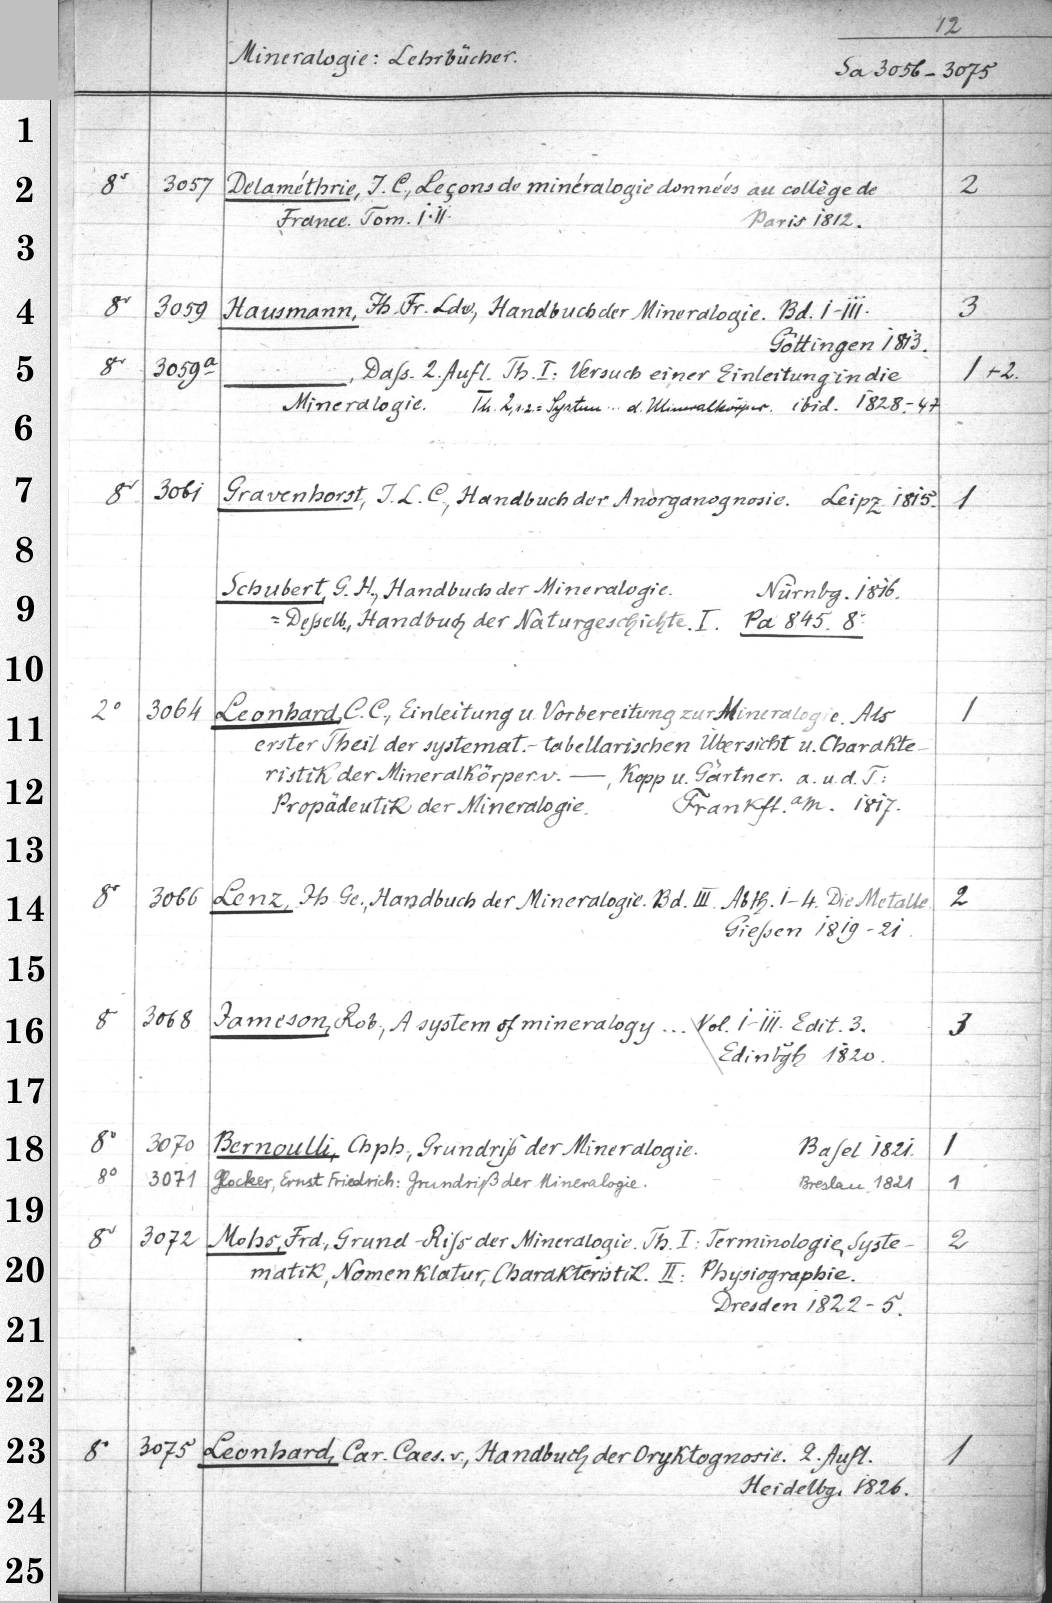 12
Mineralogie: Lehrbücher. Sa 3056-3075
1
2 8° 3057 Delaméthrie, J. C., Leçons de minéralogie données au collège de 2
France. Tom. I.II. Paris 1812.
3
4 8° 3059 Hausmann, Jh. Fr. Ldw., Handbuch der Mineralogie. Bd. I-III. 3
Göttingen 1813.
5 8° 3059a ———, Dass. 2. Aufl. Th. I: Versuch einer Einleitung in die 1+2.
Mineralogie. Th. 2,1.2 = System .. d. Mineralkörper. ibid. 1828.-47
6
7 8° 3061 Gravenhorst, J. L. C., Handbuch der Anorganognosie. Leipz. 1815. 1
8
Schubert, G. H., Handbuch der Mineralogie. Nürnbg. 1816.
9 = Desselb., Handbuch der Naturgeschichte. I. Pa 845. 8°
10
11 2° 3064 Leonhard, C. C., Einleitung u. Vorbereitung zur Mineralogie. Als 1
erster Theil der systemat.-tabellarischen Übersicht u. Charakte-
12 ristik der Mineralkörper v. —, Kopp u. Gärtner. a. u. d. T:
Propädeutik der Mineralogie. Frankft. a/m. 1817.
13
14 8° 3066 Lenz, Jh Ge., Handbuch der Mineralogie. Bd. III. Abth. 1-4. Die Metalle. 2
Giessen 1819-21.
15
16 8° 3068 Jameson, Rob., A system of mineralogy ... Vol. I-III. Edit. 3. 3
Edinbgh 1820.
17
18 8° 3070 Bernoulli, Chph., Grundriß der Mineralogie. Basel 1821. 1
8° 3071 Glocker, Ernst Friedrich: Grundriß der Mineralogie. Breslau 1821 1
19
8° 3072 Mohs, Frd., Grund-Riss der Mineralogie. Th. I: Terminologie, Syste- 2
20 matik, Nomenklatur, Charakteristik. II: Physiographie.
Dresden 1822-5.
21
22
23 8° 3075 Leonhard, Car. Caes. v., Handbuch der Oryktognosie. 2. Aufl. 1
Heidelbg. 1826.
24
25